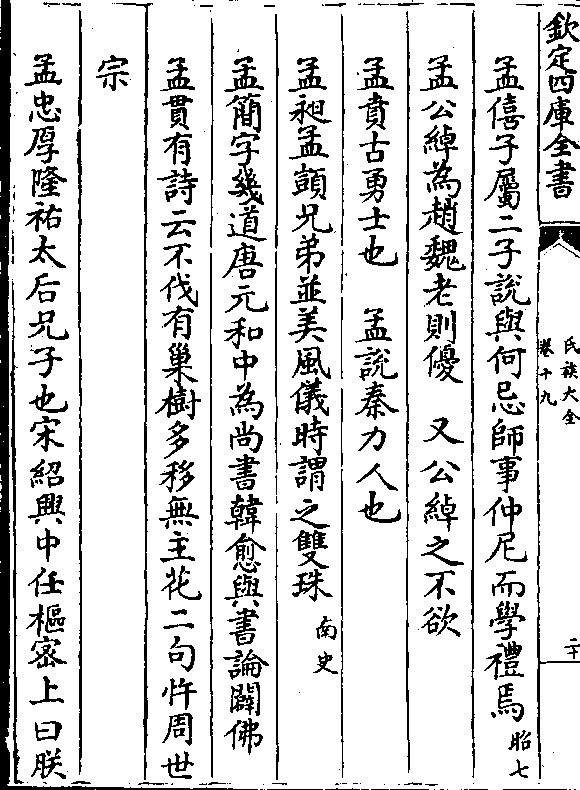 欽定四庫全書
氏族大全
卷十九
二十
孟僖子屬二子說與何忌師事仲尼而學禮焉昭七
孟公綽為趙魏老則優　又公綽之不欲
孟賁古勇士也　孟說秦力人也
孟昶孟顗兄弟並美風儀時謂之雙珠南史
孟簡字幾道唐元和中為尚書韓愈與書論闢佛
孟貫有詩云不伐有巢樹多移無主花二句忤周世
宗
孟忠厚隆祐太后兄子也宋紹興中任樞密上曰朕